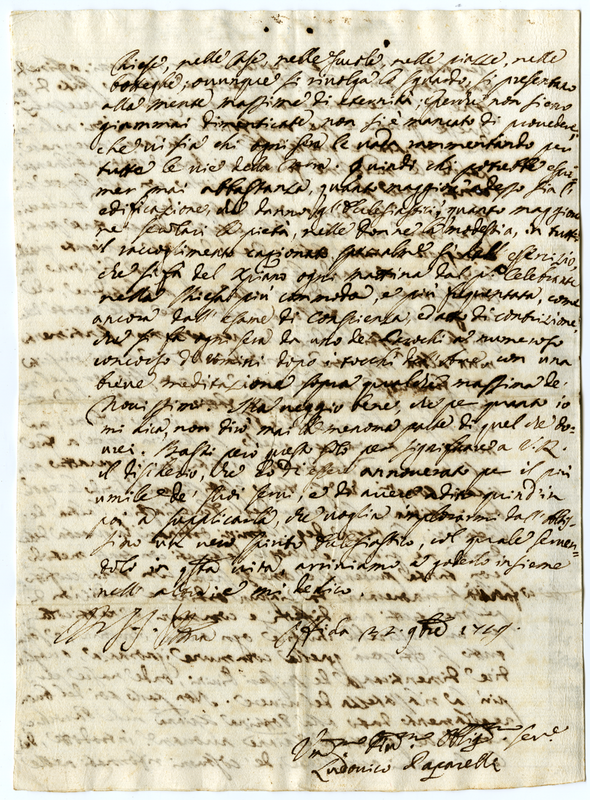 Chiese, nelle Case, nelle scuole, nelle piazze, nelle
botteghe; ovunque si rivolga lo sguardo, si presentano
alla mente massime di eternità; e perche non siano
giammai dimenticate, non si è mancato di provedere,
che vi sia chi ogni sera le vada rammentando per
tutte le vie della Terra. Quindi chi potrebbe espri=
mer mai abbastanza, quanto maggiore adesso sia l'
edificazione, che danno gl'Ecclesiastici, quanto maggiore
ne' secolari la pietà, nelle donne la modestia, in tutti
il raccoglimento cagionato esercizio,
che si fà del ogni mattina dal Celebrante
nella Chiesa più commoda, e più frequentata, come
ancora dall'esame di Conscienza, ed atto di contrizione,
che si fà ogni sera da uno de' Parochi a numeroso
concorso d'uomini dopo i tocchi dell' con una
breve meditazione sopra qualche massima de'
Novissimi. Ma veggio bene, che per quanto io
mi dica, non dirò mai la menoma parte di quel che do=
vrei. Basti però questo solo per significare a V. R.
il disiderio, che hò di essere annoverato per il più
umile de' suoi servi, e di avere adito quind'in
poi a supplicarla, che voglia impetrarmi dall'Altis=
simo un vero spirito Ecclesiastico, col quale serven=
dolo in questa vita, arriviamo a goderlo insieme
nell'altra; e mi dedico.
Offida 22. 9bre 17
Obligmo. Serve.
Ludovico